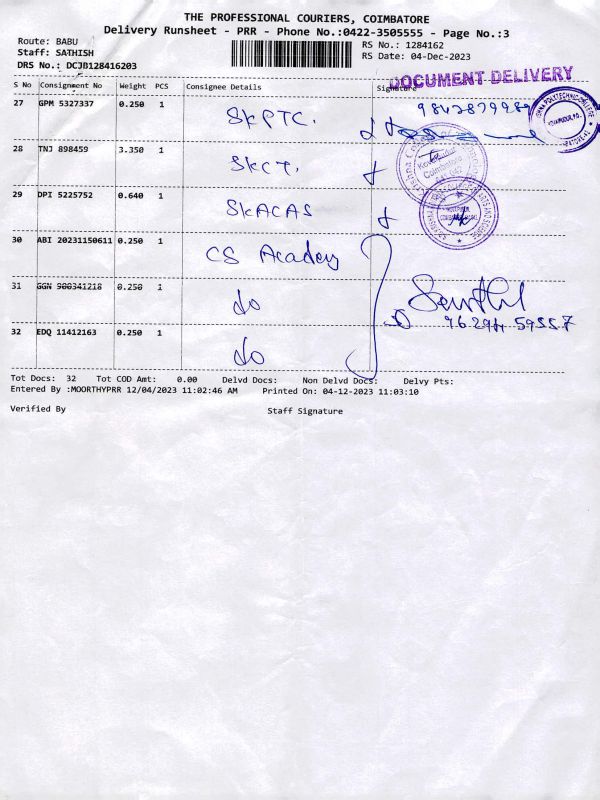 THE PROFESSIONAL COURIERS, COIMBATORE
Delivery Runsheet - PRR - Phone No.:0422-3505555 - Page No.:3
Route: BABU
Staff: SATHISH
DRS No.: DCJB128416203
RS No.: 1284162
RS Date: 04-Dec-2023
DOCUMENT DELIVERY
S No Consignment No Weight PCS Consignee Details Signature
27 GPM 5327337 0.250 1 SKPTC. 9842879989
28 TNJ 898459 3.350 1 SKCT.
29 DPI 5225752 0.640 1 SKACAS
30 ABI 20231150611 0.250 1 CS Academy
31 GGN 900341218 0.250 1 do Senthil
9.6.294.59557
32 EDQ 11412163 0.250 1 do
Tot Docs: 32 Tot COD Amt: 0.00 Delvd Docs: Non Delvd Docs: Delvy Pts:
Entered By :MOORTHYPRR 12/04/2023 11:02:46 AM Printed On: 04-12-2023 11:03:10
Verified By Staff Signature